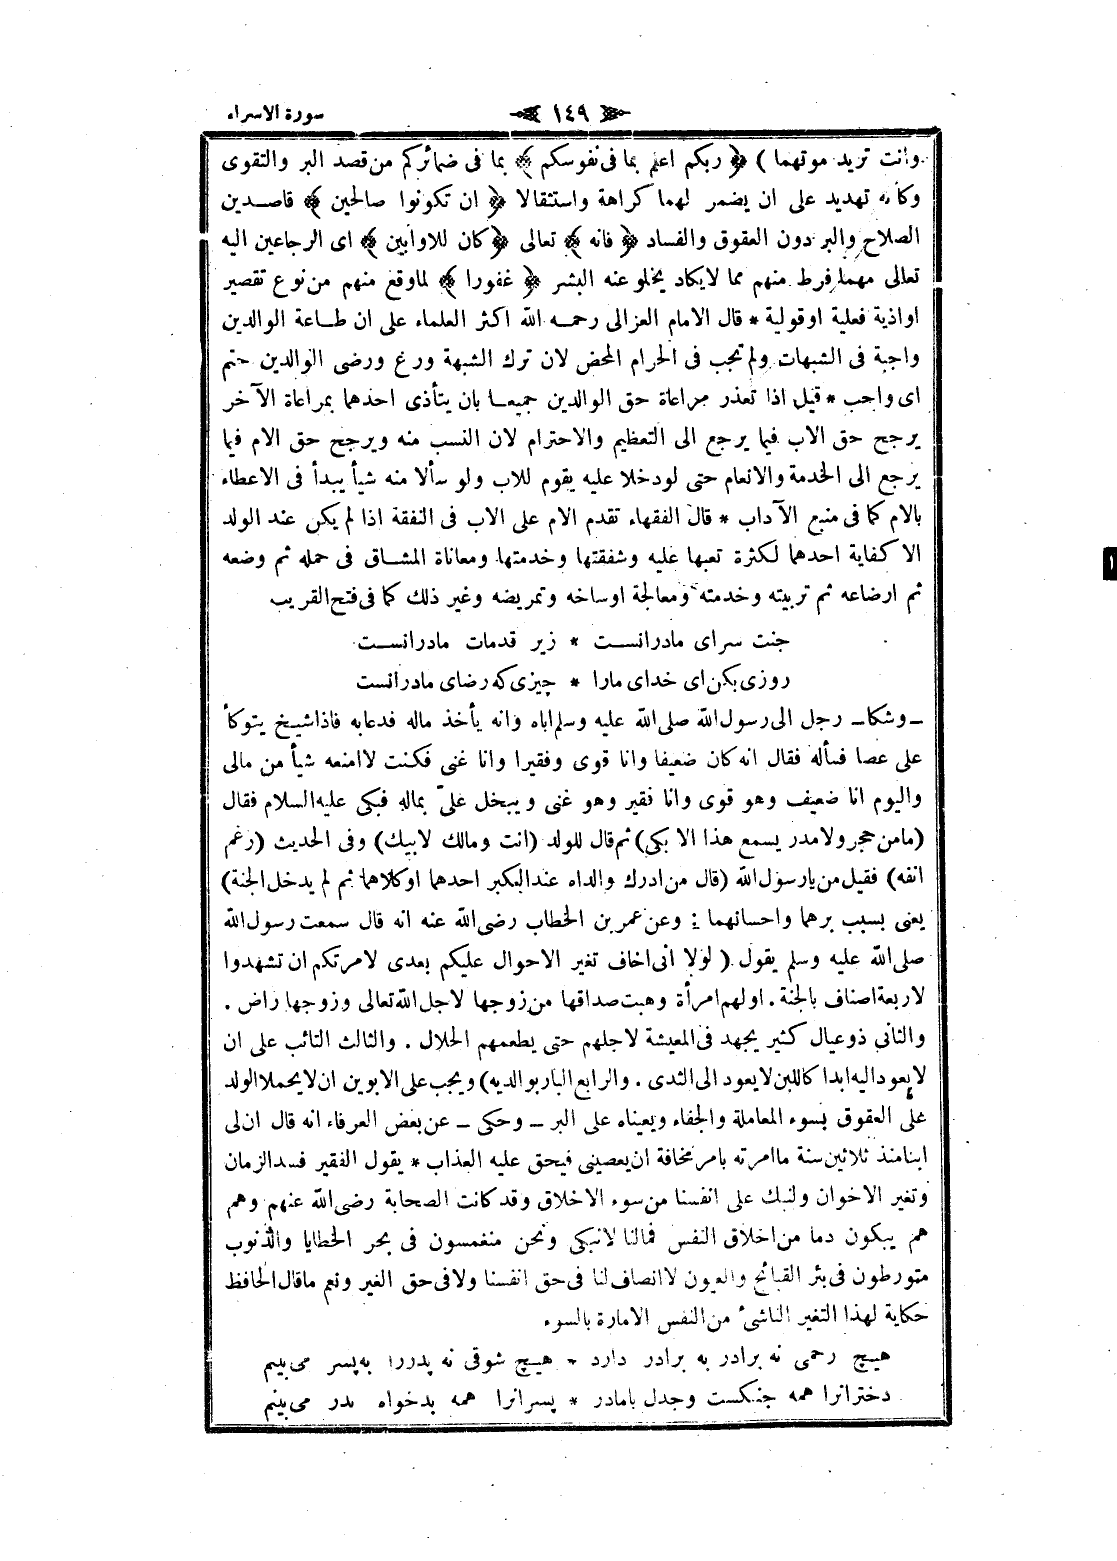 سورة الاسراء ١٤٩
وانت تريد موتهما ) ﴿ ربكم اعلم بما فى نفوسكم ﴾ بما فى ضمائركم من قصد البر والتقوى
وكأنه تهديد على ان يضمر لهما كراهة واستثقالا ﴿ ان تكونوا صالحين ﴾ قاصدين
الصلاح والبر دون العقوق والفساد ﴿ فانه ﴾ تعالى ﴿ كان للاوابين ﴾ اى الرجاعين اليه
تعالى مهما فرط منهم مما لايكاد يخلو عنه البشر ﴿ غفورا ﴾ لماوقع منهم من نوع تقصير
او اذية فعلية اوقولية * قال الامام الغزالى رحمه الله اكثر العلماء على ان طاعة الوالدين
واجبة فى الشبهات ولم تجب فى الحرام المحض لان ترك الشبهة ورع ورضى الوالدين حتم
اى واجب * قيل اذا تعذر مراعاة حق الوالدين جميعا بان يتأذى احدهما بمراعاة الآخر
يرجح حق الاب فيما يرجع الى التعظيم والاحترام لان النسب منه ويرجح حق الام فيما
يرجع الى الخدمة والانعام حتى لودخلا عليه يقوم للاب ولو سألا منه شيأ يبدأ فى الاعطاء
بالام كما فى منبع الآداب * قال الفقهاء تقدم الام على الاب فى النفقة اذا لم يكن عند الولد
الا كفاية احدهما لكثرة تعبها عليه وشفقتها وخدمتها ومعاناة المشاق فى حمله ثم وضعه
ثم ارضاعه ثم تربيته وخدمته ومعالجة اوساخه وتمريضه وغير ذلك كما فى فتح القريب
جنت سراى مادرانست * زير قدمات مادرانست
روزى بكن اى خداى مارا * چيزى كه رضاى مادرانست
ـ وشكا ـ رجل الى رسول الله صلى الله عليه وسلم اباه وانه يأخذ ماله فدعا به فاذا شيخ يتوكأ
على عصا فسأله فقال انه كان ضعيفا وانا قوى وفقيرا وانا غنى فكنت لا امنعه شيأ من مالى
واليوم انا ضعيف وهو قوى وانا فقير وهو غنى ويبخل علىّ بماله فبكى عليه السلام فقال
(مامن حجر ولا مدر يسمع هذا الا بكى) ثم قال للولد (انت ومالك لابيك) وفى الحديث (رغم
انفه) فقيل من يارسول الله (قال من ادرك والداه عند الكبر احدهما او كلاهما ثم لم يدخل الجنة)
يعنى بسبب برهما واحسانهما : وعن عمر بن الخطاب رضى الله عنه انه قال سمعت رسول الله
صلى الله عليه وسلم يقول ( لولا انى اخاف تغير الاحوال عليكم بعدى لامرتكم ان تشهدوا
لاربعة اصناف بالجنة . اولهم امرأة وهبت صداقها من زوجها لاجل الله تعالى وزوجها راض .
والثانى ذوعيال كثير يجهد فى المعيشة لاجلهم حتى يطعمهم الحلال . والثالث التائب على ان
لايعود اليه ابدا كاللبن لايعود الى الثدى . والرابع البار بوالديه) ويجب على الابوين ان لايحملا الولد
على العقوق بسوء المعاملة والجفاء ويعيناه على البر ـ وحكى ـ عن بعض العرفاء انه قال ان لى
ابنا منذ ثلاثين سنة ما امرته بامر مخافة ان يعصينى فيحق عليه العذاب * يقول الفقير فسد الزمان
وتغير الاخوان ولنبك على انفسنا من سوء الاخلاق وقد كانت الصحابة رضى الله عنهم وهم
هم يبكون دما من اخلاق النفس فمالنا لانبكى ونحن منغمسون فى بحر الخطايا والذنوب
متورطون فى بئر القبائح والعيون لا انصاف لنا فى حق انفسنا ولا فى حق الغير ونعم ماقال الحافظ
حكاية لهذا التغير الناشئ من النفس الامارة بالسوء
هيچ رحمى نه برادر به برادر دارد * هيچ شوقى نه پدررا به پسر مى بينم
دخترانرا همه جنكست وجدل بامادر * پسرانرا همه بدخواه پدر مى بينم